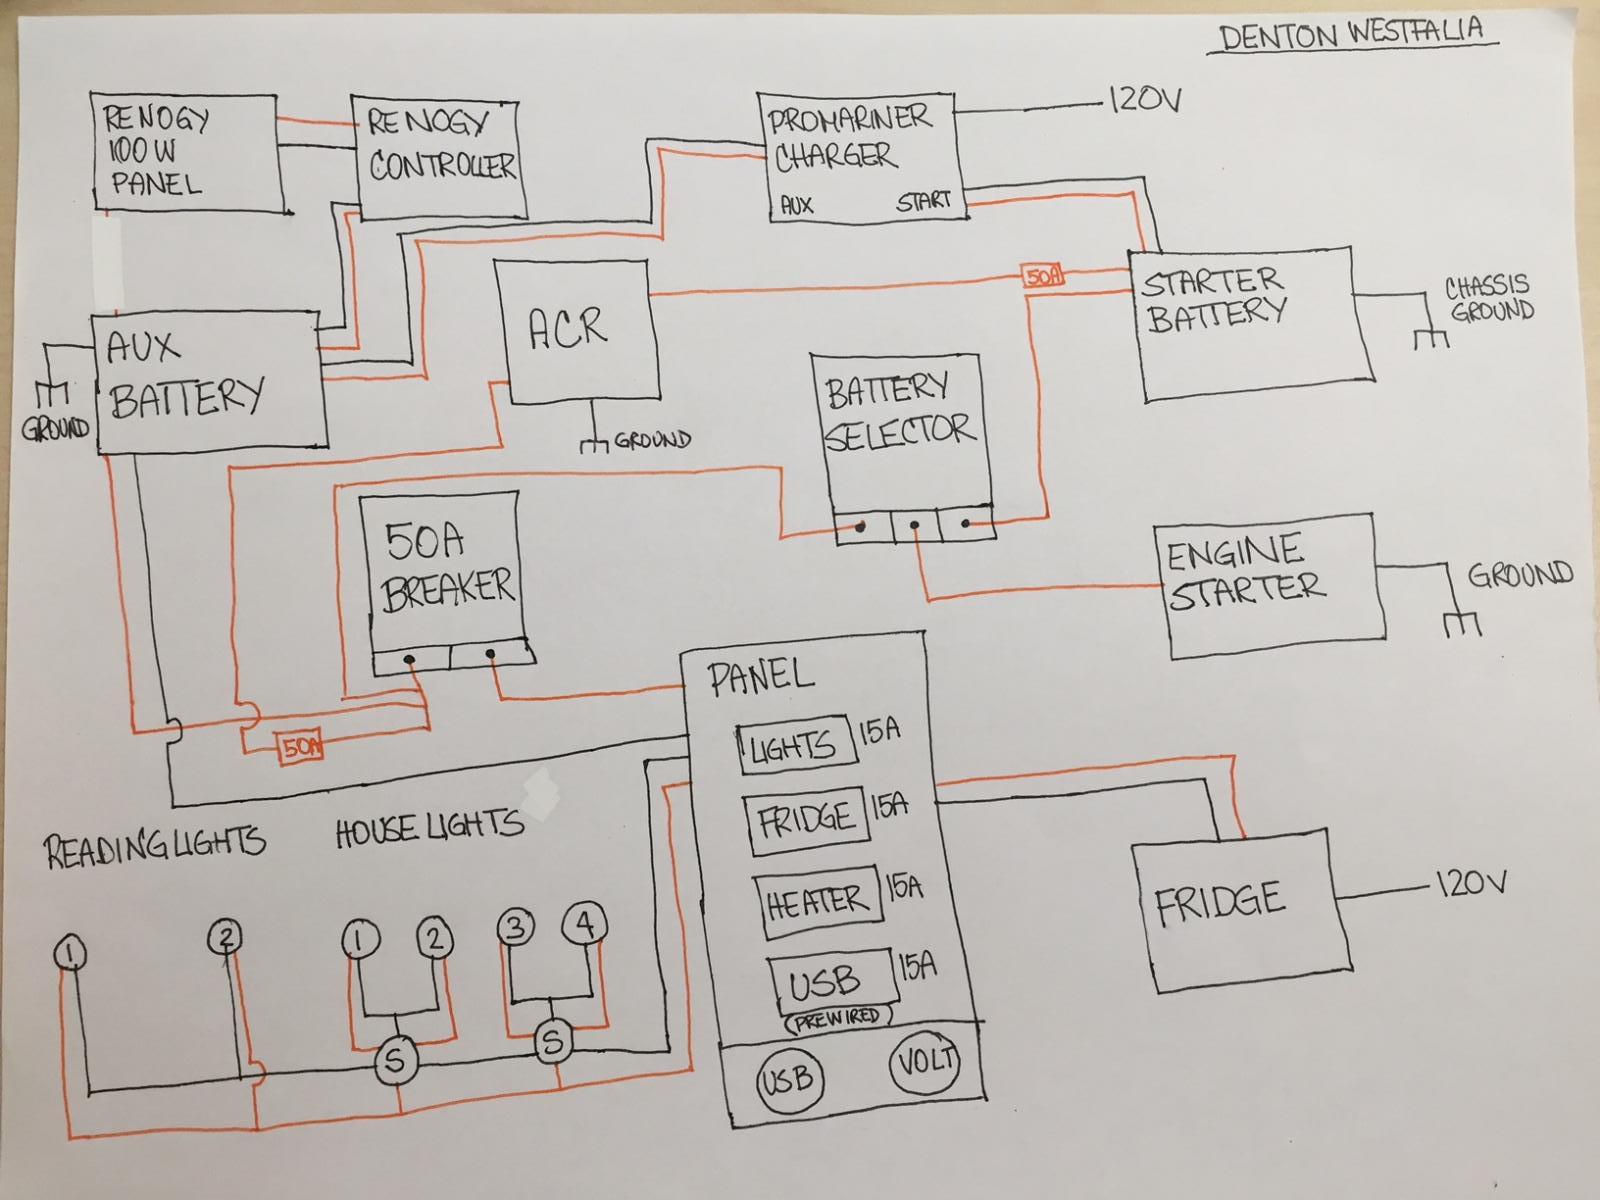 DENTON WESTFALIA
RENOGY
100W
PANEL
RENOGY
CONTROLLER
PROMARINER
CHARGER
AUX START
120V
AUX
BATTERY
GROUND
ACR
GROUND
50A
STARTER
BATTERY
CHASSIS
GROUND
BATTERY
SELECTOR
50A
BREAKER
ENGINE
STARTER
GROUND
50A
PANEL
LIGHTS 15A
FRIDGE 15A
HEATER 15A
USB 15A
(PREWIRED)
USB VOLT
FRIDGE
120V
READING LIGHTS
HOUSE LIGHTS
1 2
1 2 3 4
S S